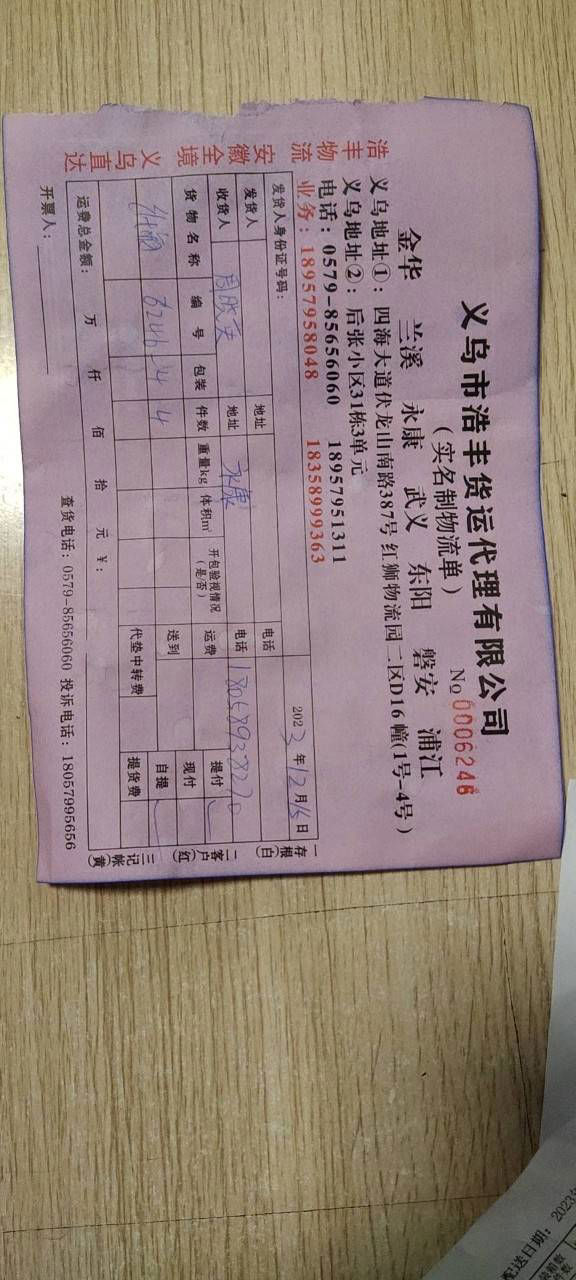 义乌市浩丰货运代理有限公司
(实名制物流单) No 0006246
金华 兰溪 永康 武义 东阳 磐安 浦江
义乌地址①:四海大道伏龙山南路387号红狮物流园二区D16幢(1号-4号)
义乌地址②:后张小区31栋3单元
电话:0579-85656060 18957951311
业务:18957958048 18358999363
浩丰物流 安徽全境 义乌直达
发货人身份证号码: 2023年12月15日
发货人 地址 电话
收货人 地址 永康 电话 18058938270
货物名称 编号 包装 件数 重量kg 体积m³ 开包验视情况(是/否) 运费 提付
6246-4 4 送到 现付
代垫中转费 自提
提货费
运费总金额: 万 仟 佰 拾 元 ¥:
开票人: 查货电话:0579-85656060 投诉电话:18057995656
一存根(白) 二客户(红) 三记帐(黄)
配送日期:2023